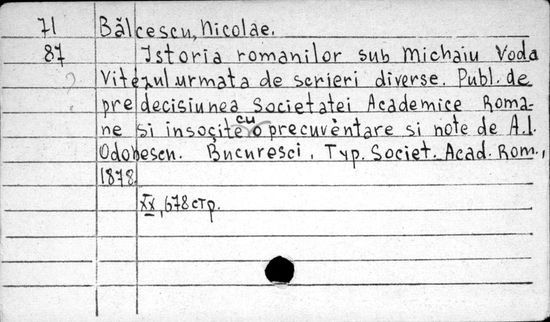 71 Bălcescu, Nicolae.
87 Istoria romanilor sub Michaiu Voda
? Vitézul urmata de scrieri diverse. Publ. de
pre decisiunea Societatei Academice Roma-
ne si insoçite cu o precuvêntare si note de A.I.
Odobescu. Bucuresci, Typ. Societ. Acad. Rom.,
1878.
XX, 678 стр.